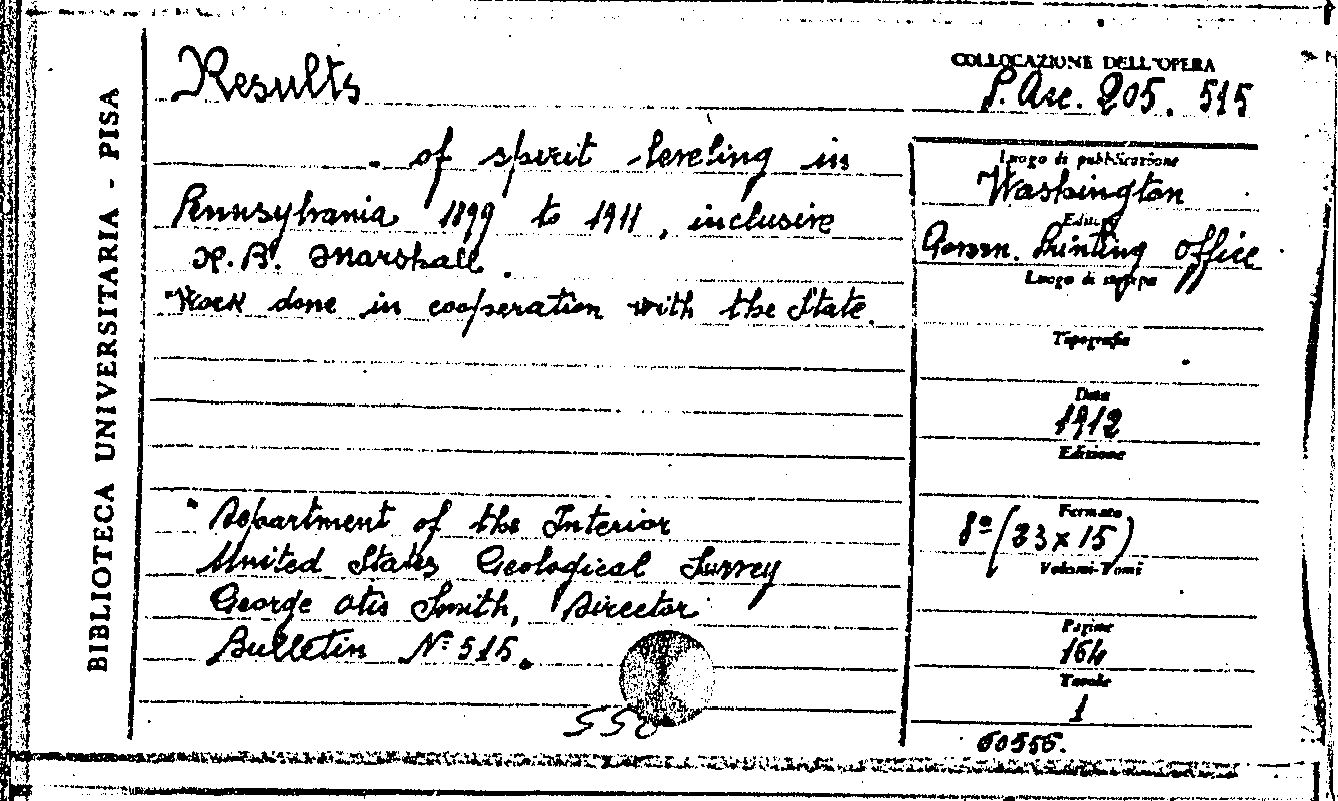 BIBLIOTECA UNIVERSITARIA - PISA
Results
of spirit leveling in
Pennsylvania 1899 to 1911, inclusive
R. B. Marshall.
"Work done in cooperation with the State.
" Department of the Interior
United States Geological Survey
George Otis Smith, Director
Bulletin Nº 515.
550
COLLOCAZIONE DELL'OPERA
P. Arc. 205. 515
Luogo di pubblicazione
Washington
Editore
Govern. Printing Office
Luogo di stampa
Tipografia
Data
1912
Edizione
Formato
8º (23 x 15)
Volumi-Tomi
Pagine
164
Tavole
1
60556.